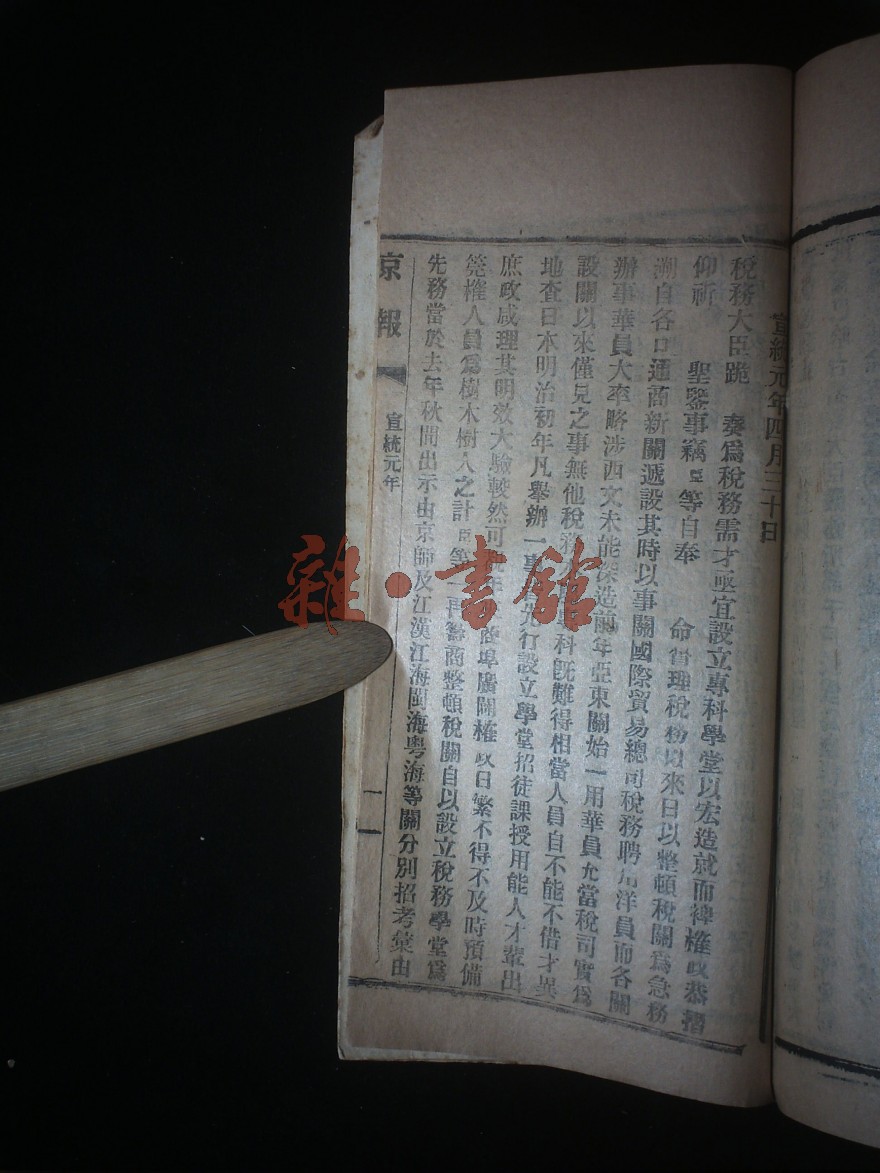 宣統元年四月三十日
稅務大臣跪 奏爲稅務需才亟宜設立專科學堂以宏造就而裨榷政恭摺
仰祈 聖鑒事竊臣等自奉 命管理稅務以來日以整頓稅關爲急務
溯自各口通商新關遞設其時以事關國際貿易總司稅務聘用洋員而各關
辦事華員大率略涉西文未能深造前年亞東關始一用華員充當稅司實爲
設關以來僅見之事無他稅務 專科旣難得相當人員自不能不借才異
地查日本明治初年凡舉辦一事 先行設立學堂招徒課授用能人才輩出
庶政咸理其明效大驗較然可 年 商埠廣闢榷政日繁不得不及時預備
筦榷人員爲樹木樹人之計臣等一再籌商整頓稅關自以設立稅務學堂爲
先務當於去年秋間出示由京師及江漢江海閩海粤海等關分別招考彙由
京報 宣統元年 一
雜·書館